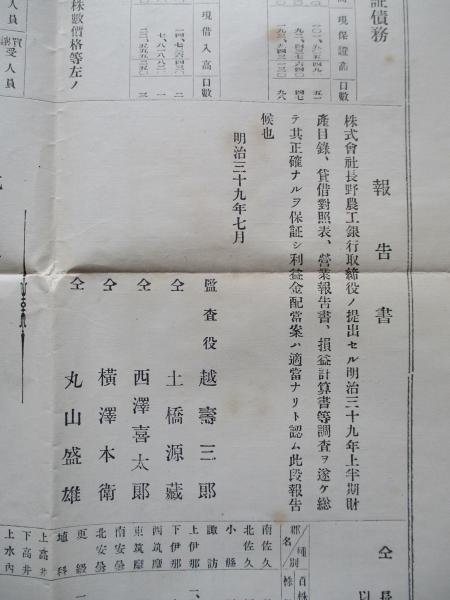 証債務
現保證高
口數
一〇一、九〇五 四九
五一
九二、九七六 四〇
四七
現借入高
口數
株數價格等左ノ
人員
買受人員
報告書
株式會社長野農工銀行取締役ノ提出セル明治三十九年上半期財
產目錄、貸借對照表、營業報告書、損益計算書等調査ヲ遂ケ総
テ其正確ナルヲ保証シ利益金配當案ハ適當ナリト認ム此段報告
候也
明治三十九年七月
監査役 越壽三郎
仝 土橋源藏
仝 西澤喜太郎
仝 橫澤本衛
仝 丸山盛雄
仝長
以
種別
郡名
百株
株
南佐久
北佐久
小縣
諏訪
上伊那
下伊那
西筑摩
東筑摩
南安曇
北安曇
更級
埴科
上高井
下高井
上水內